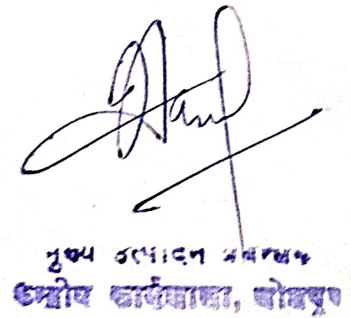 मुख्य उत्पादन प्रबन्धक
केन्द्रीय कार्यशाला, जोधपुर